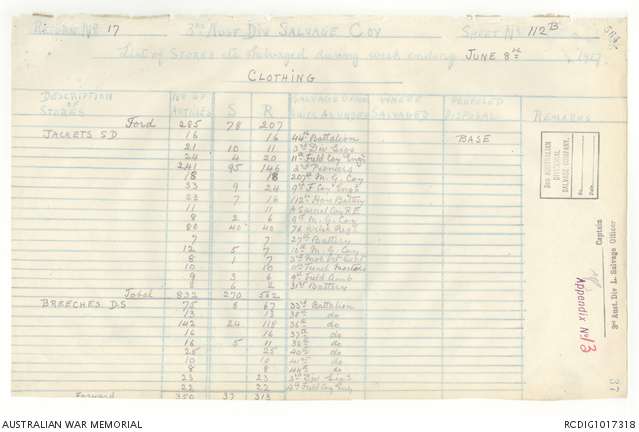 RETURN No 17 3rd AUST DIV SALVAGE COY SHEET No 112B
List of Stores etc Salvaged during week ending JUNE 8th 1917
CLOTHING
DESCRIPTION OF STORES No OF ARTICLES S R SALVAGED FROM WHERE SALVAGED PROPOSED DISPOSAL REMARKS
Ford 285 78 207
JACKETS S D 16 16 44th Battalion BASE
21 10 11 3rd Div
24 4 20 11th Field Coy Eng's
241 95 146 3rd Pioneers
18 18 207th M.G. Coy
33 9 24 9th F. Coy Eng's
23 7 16 112th How Battery
11 11 Special Coy R.E.
8 2 6 9th M.G. Coy
80 40 40
7 7 27th Battery
12 5 7 10th M.G. Coy
8 1 7 3rd
10 10
9 3 6 9th Field Amb
8 6 2 31st Battery
Total 832 270 562
BREECHES D.S 75 8 67 33rd Battalion
13 13 do
142 24 118 do
16 16 do
16 5 11 do
25 25 40th do
10 10 do
8 8 44th do
23 23 3rd Div
22 22 Field Coy
Forward 350 37 313
3RD AUSTRALIAN
DIVISIONAL
SALVAGE COMPANY.
No.
Date
Captain
3rd Aust. Div L. Salvage Officer
Appendix No 13
37
AUSTRALIAN WAR MEMORIAL RCDIG1017318